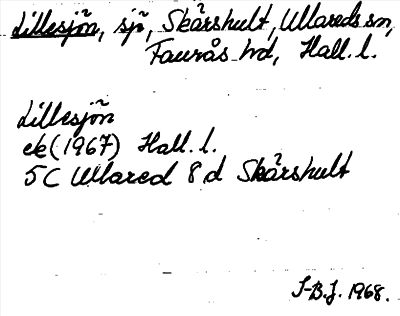 Lillesjön, sjö, Skärshult, Ullareds sn,
Faurås hd, Hall. l.
Lillesjön
ek (1967) Hall. l.
5C Ullared 8 d Skärshult
J-B.J. 1968.